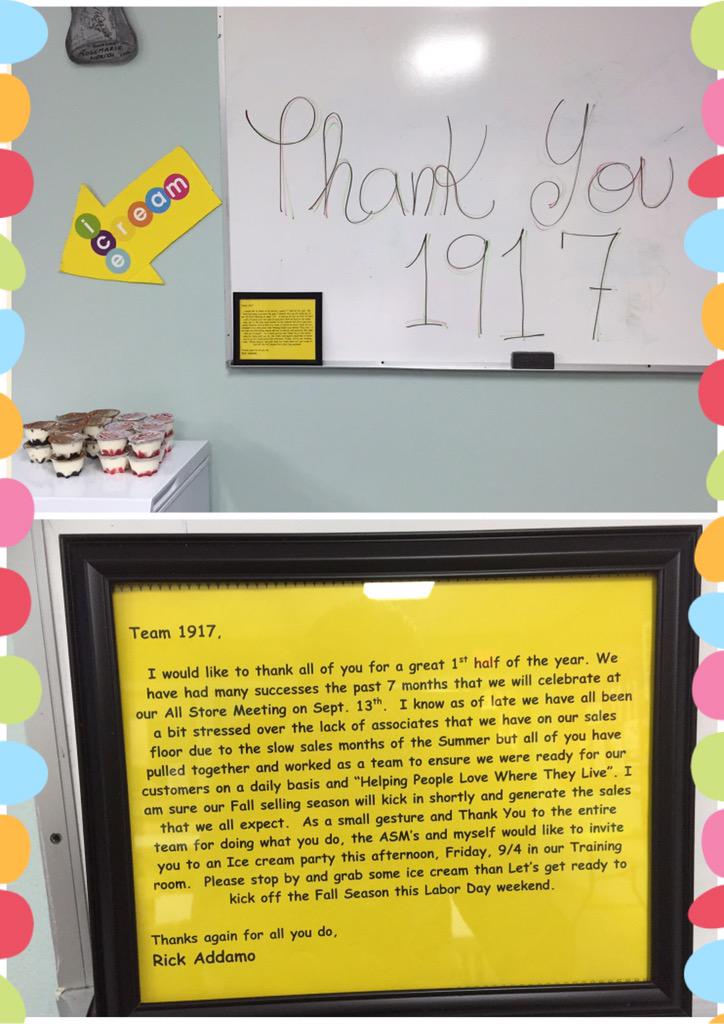 Thank You
1917
ice cream
Team 1917,
I would like to thank all of you for a great 1st half of the year. We
have had many successes the past 7 months that we will celebrate at
our All Store Meeting on Sept. 13th. I know as of late we have all been
a bit stressed over the lack of associates that we have on our sales
floor due to the slow sales months of the Summer but all of you have
pulled together and worked as a team to ensure we were ready for our
customers on a daily basis and “Helping People Love Where They Live”. I
am sure our Fall selling season will kick in shortly and generate the sales
that we all expect. As a small gesture and Thank You to the entire
team for doing what you do, the ASM's and myself would like to invite
you to an Ice cream party this afternoon, Friday, 9/4 in our Training
room. Please stop by and grab some ice cream than Let's get ready to
kick off the Fall Season this Labor Day weekend.
Thanks again for all you do,
Rick Addamo